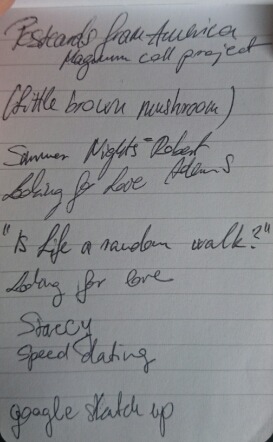 Postcards from America
Magnum coll project
(Little brown mushroom)
Summer Nights - Robert
Looking for love Adams
"Is life a random walk?"
Looking for love
Staccy
speed dating
google sketch up